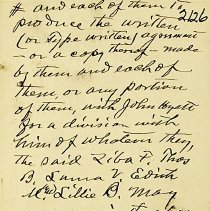 # and each of them to
2126
produce the written
(or Type written) agreement
- or a copy thereof made
by them and each of
them, or any portion
of them, with John Hyett
for a division with
him of whatever they,
the said Ziba P. Thos
B. Laura V. Edith
McLillie B. May